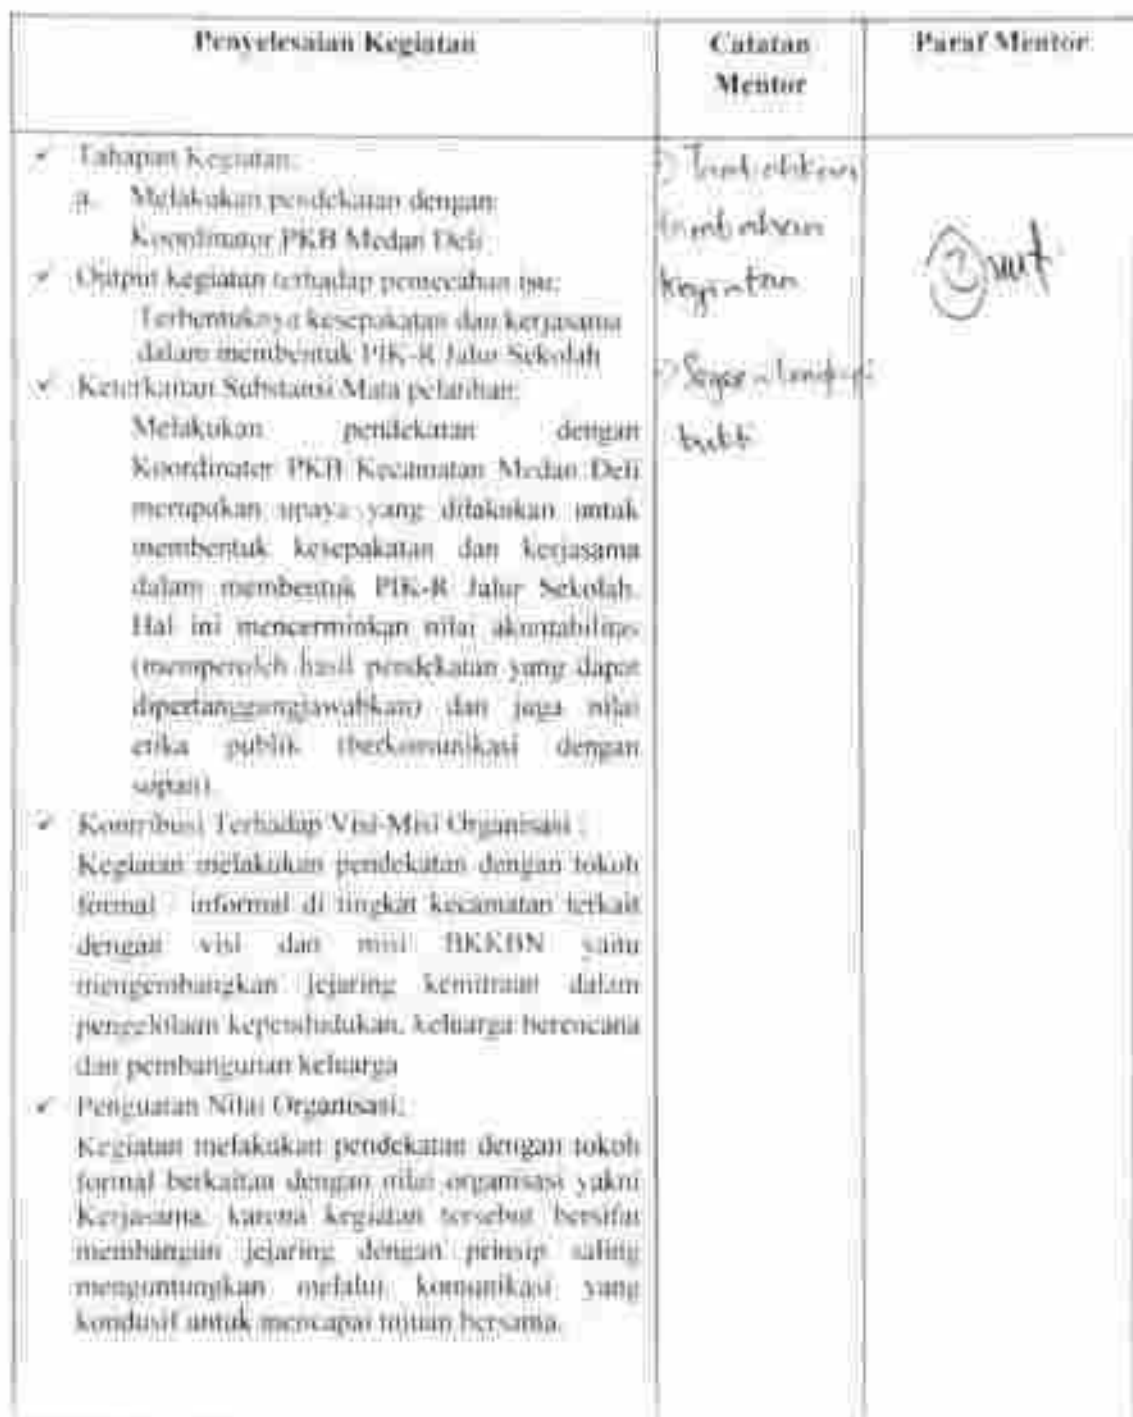 Penyelesaian Kegiatan
Catatan
Mentor
Paraf Mentor
✓ Tahapan Kegiatan:
a. Melakukan pendekatan dengan
Koordinator PKB Medan Deli
✓ Output kegiatan terhadap pemecahan isu:
Terbentuknya kesepakatan dan kerjasama
dalam membentuk PIK-R Jalur Sekolah
✓ Keterkaitan Substansi Mata pelatihan:
Melakukan pendekatan dengan
Koordinator PKB Kecamatan Medan Deli
merupakan upaya yang dilakukan untuk
membentuk kesepakatan dan kerjasama
dalam membentuk PIK-R Jalur Sekolah.
Hal ini mencerminkan nilai akuntabilitas
(memperoleh hasil pendekatan yang dapat
dipertanggungjawabkan) dan juga nilai
etika publik (berkomunikasi dengan
sopan).
✓ Kontribusi Terhadap Visi-Misi Organisasi :
Kegiatan melakukan pendekatan dengan tokoh
formal informal di tingkat kecamatan terkait
dengan visi dan misi BKKBN yaitu
mengembangkan jejaring kemitraan dalam
pengelolaan kependudukan, keluarga berencana
dan pembangunan keluarga
✓ Penguatan Nilai Organisasi:
Kegiatan melakukan pendekatan dengan tokoh
formal berkaitan dengan nilai organisasi yakni
Kerjasama, karena kegiatan tersebut bersifat
membangun jejaring dengan prinsip saling
menguntungkan melalui komunikasi yang
kondusif untuk mencapai tujuan bersama.
kegiatan
bukti